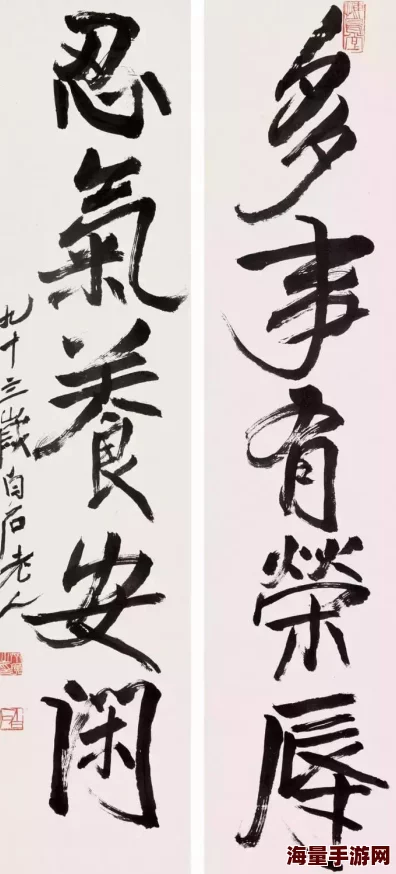 多事有榮辱
忍氣養安閑
九十三歲白石老人
海量手游网